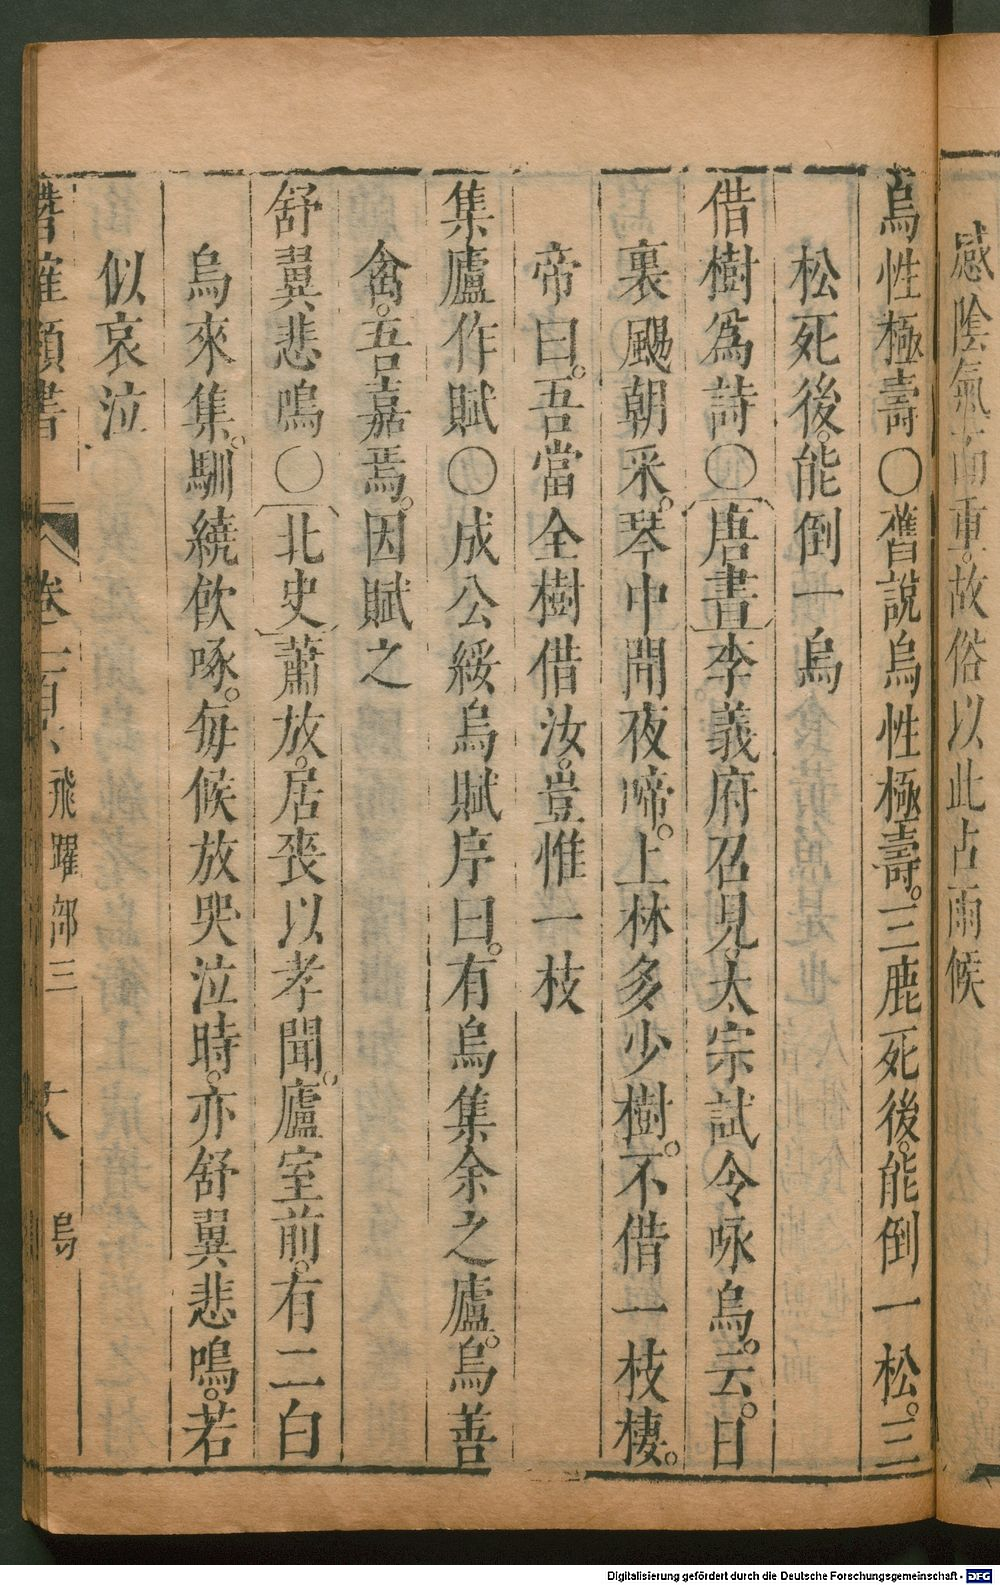 感陰氣而重。故俗以此占雨候
烏性極壽〇舊說烏性極壽。三鹿死後。能倒一松。三
松死後。能倒一烏
借樹為詩〇唐書李義府召見。太宗試令咏烏。云。日
裏颺朝采。琴中聞夜啼。上林多少樹。不借一枝棲。
帝曰。吾當全樹借汝。豈惟一枝
集廬作賦〇成公綏烏賦序曰。有烏集余之廬。烏善
禽。吾嘉焉。因賦之
舒翼悲鳴〇北史蕭放。居喪以孝聞。廬室前。有二白
烏來集。馴繞飲啄。每候放哭泣時。亦舒翼悲鳴。若
似哀泣
潛確類書 卷一百 飛躍部三 烏
Digitalisierung gefördert durch die Deutsche Forschungsgemeinschaft - DFG